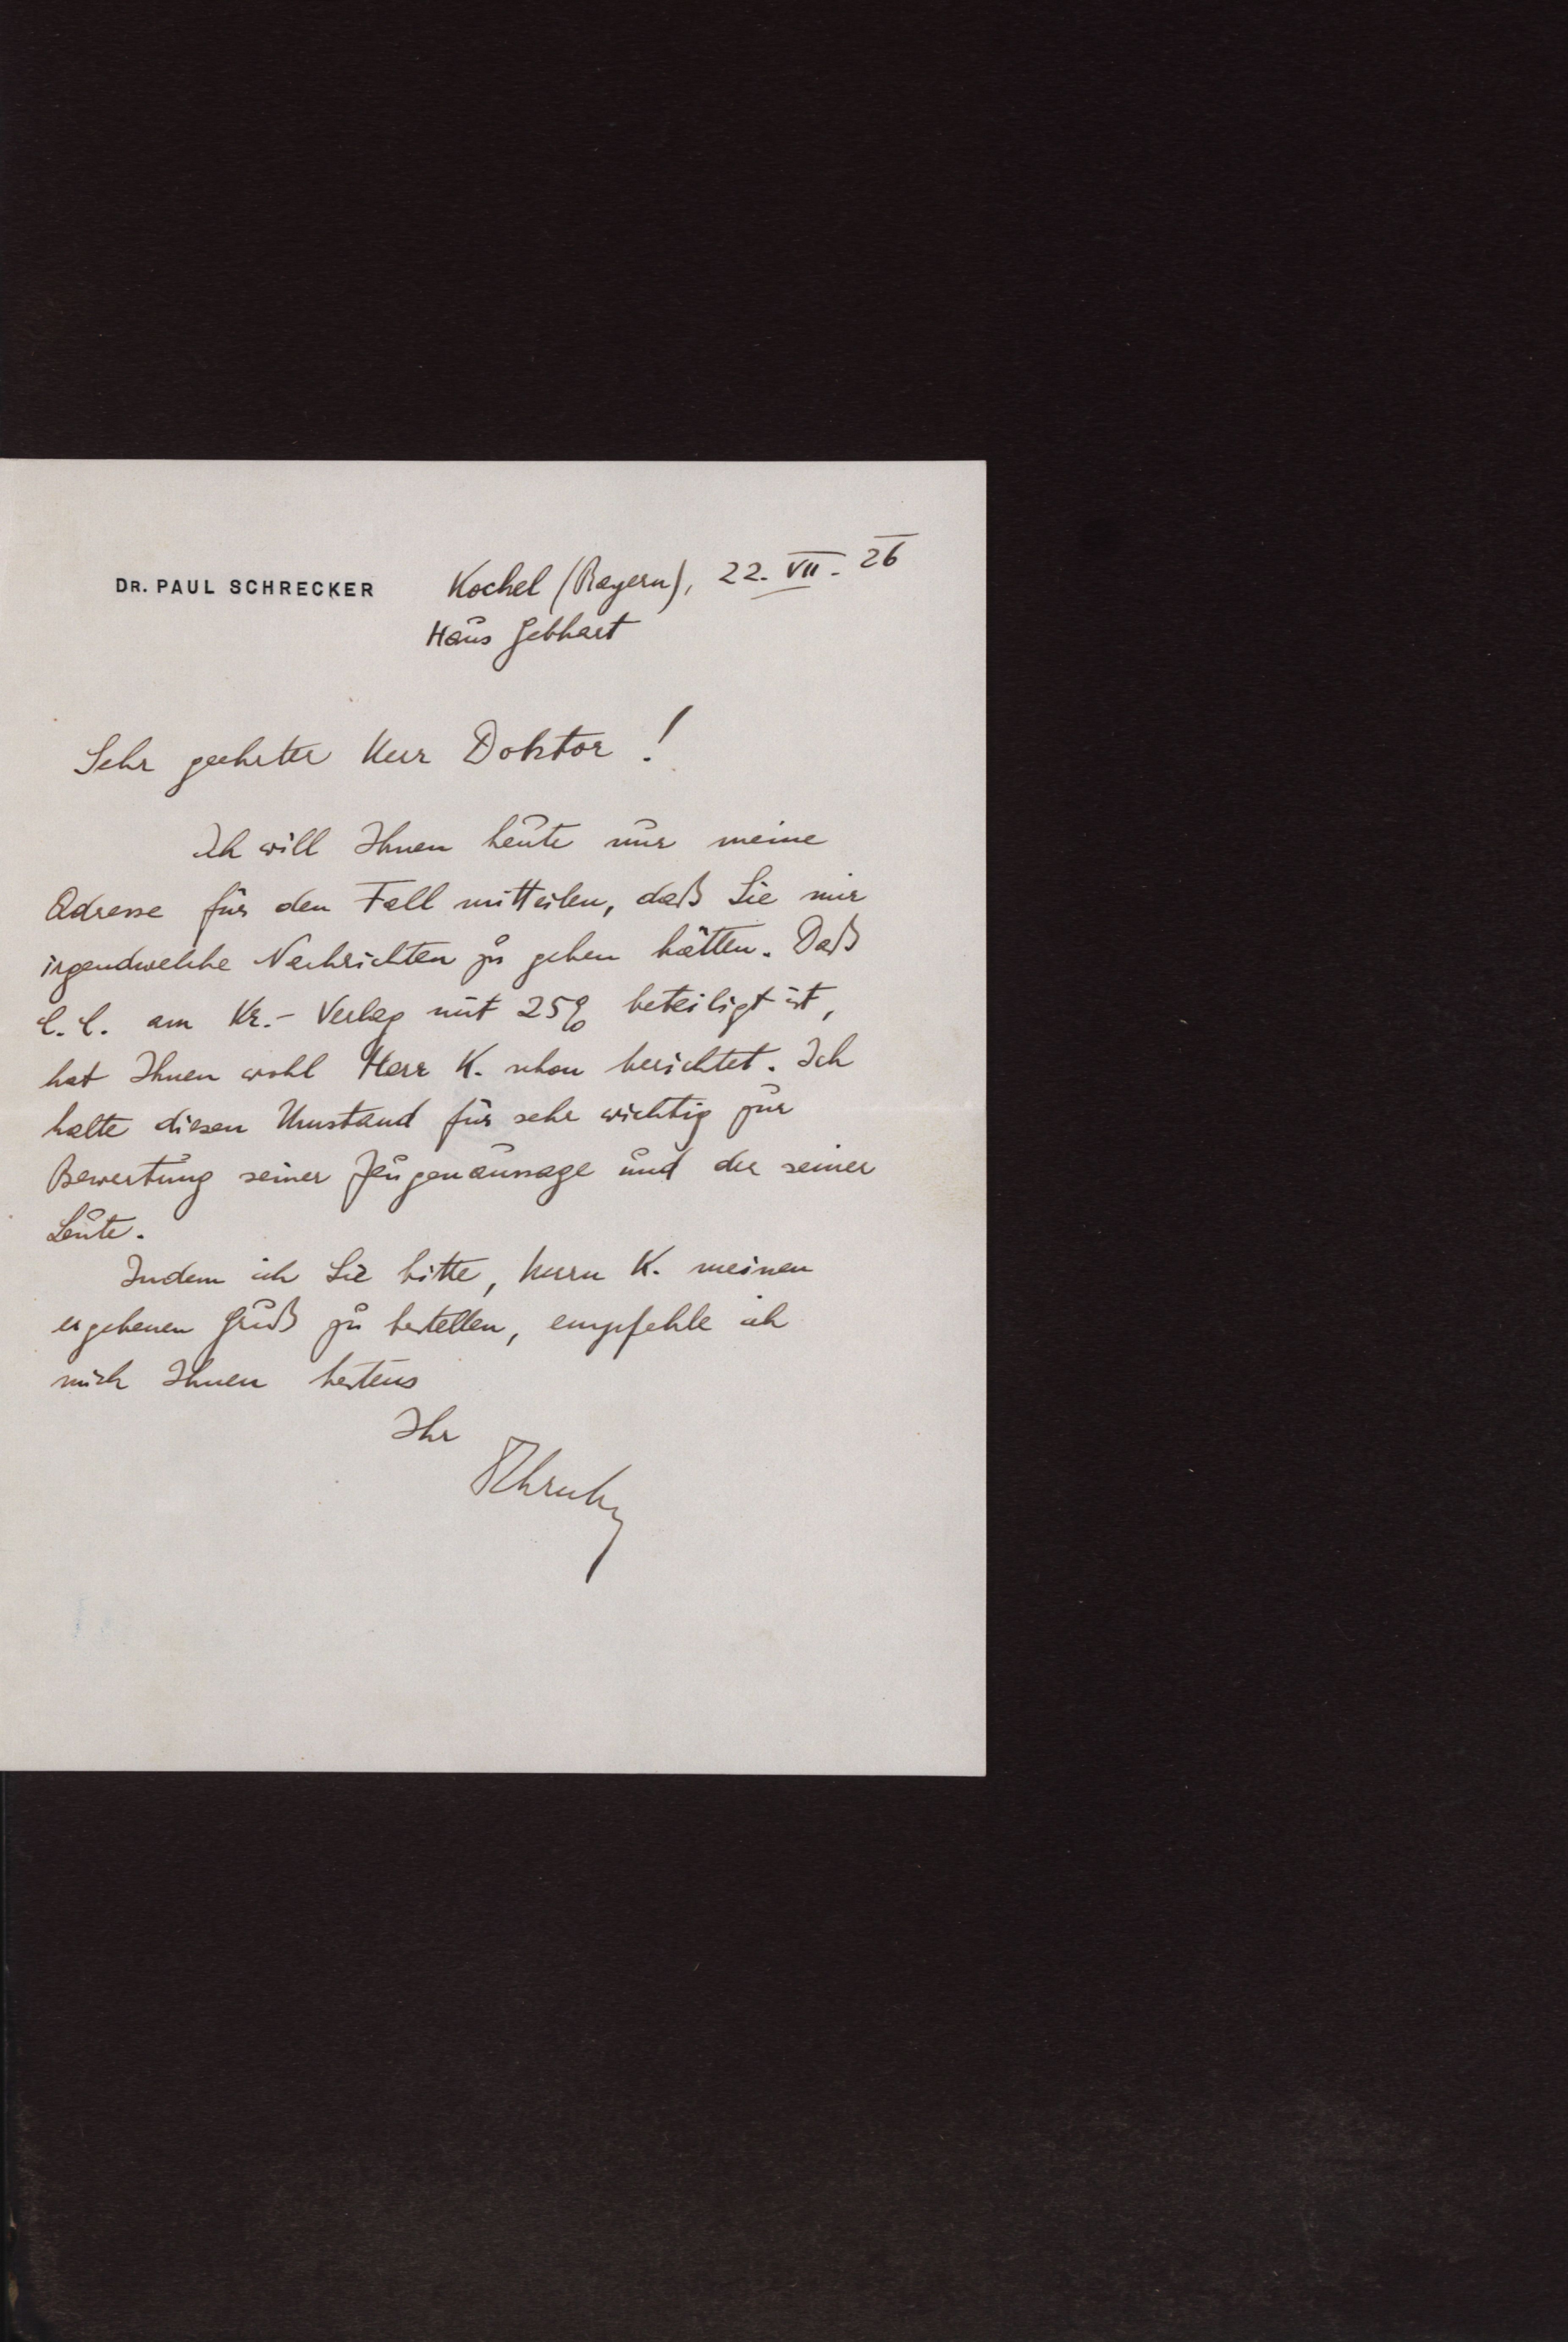 DR. PAUL SCHRECKER
Kochel (Bayern), 22. VII. 26
Haus Gebhart
Sehr geehrter Herr Doktor!
Ich will Ihnen heute nur meine
Adresse für den Fall mitteilen, daß Sie mir
irgendwelche Nachrichten zu geben hätten. Daß
C. C. am Kr.-Verlag mit 25% beteiligt ist,
hat Ihnen wohl Herr K. schon berichtet. Ich
halte diesen Umstand für sehr wichtig zur
Bewertung seiner Zeugenaussage und der seiner
Leute.
Indem ich Sie bitte, Herrn K. meinen
ergebenen Gruß zu bestellen, empfehle ich
mich Ihnen bestens
Ihr